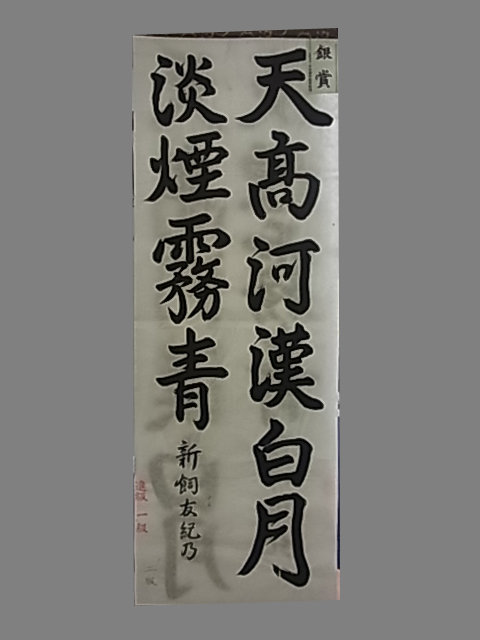 銀賞
天高河漢白月
淡煙霧青
新飼友紀乃
進級 一級
二級